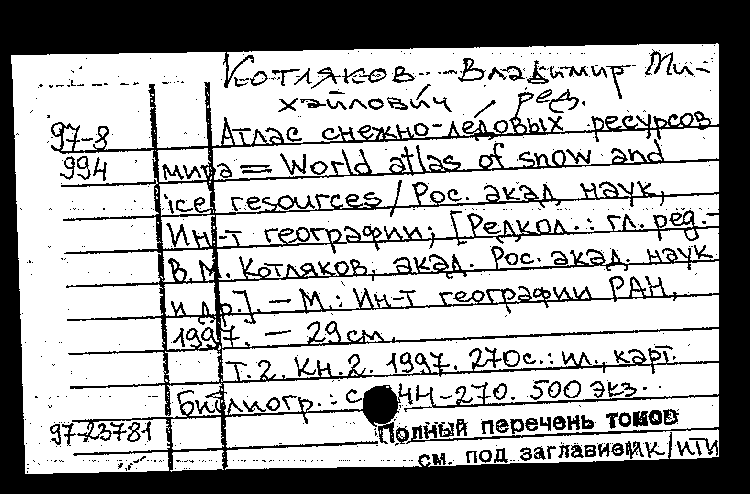 Котляков Владимир Ми-
хайлович, ред.
97-8 Атлас снежно-ледовых ресурсов
994 мира = World atlas of snow and
ice resources / Рос. акад. наук,
Ин-т географии; [Редкол.: гл. ред.-
В.М. Котляков, акад. Рос. акад. наук
и др.]. — М.: Ин-т географии РАН,
1997. — 29см.
Т.2. Кн.2. 1997. 270с.: ил., карт.
Библиогр.: с. 44-270. 500 экз.
97-23781 Полный перечень томов
см. под заглавием